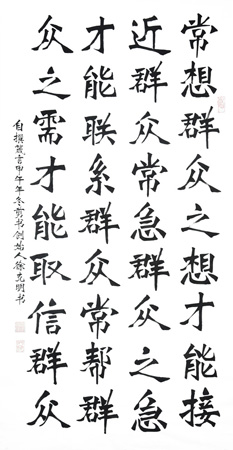 常想群众之想才能接
近群众常急群众之急
才能联系群众常帮群
众之需才能取信群众
自撰箴言甲午年冬剪书创始人徐克明书